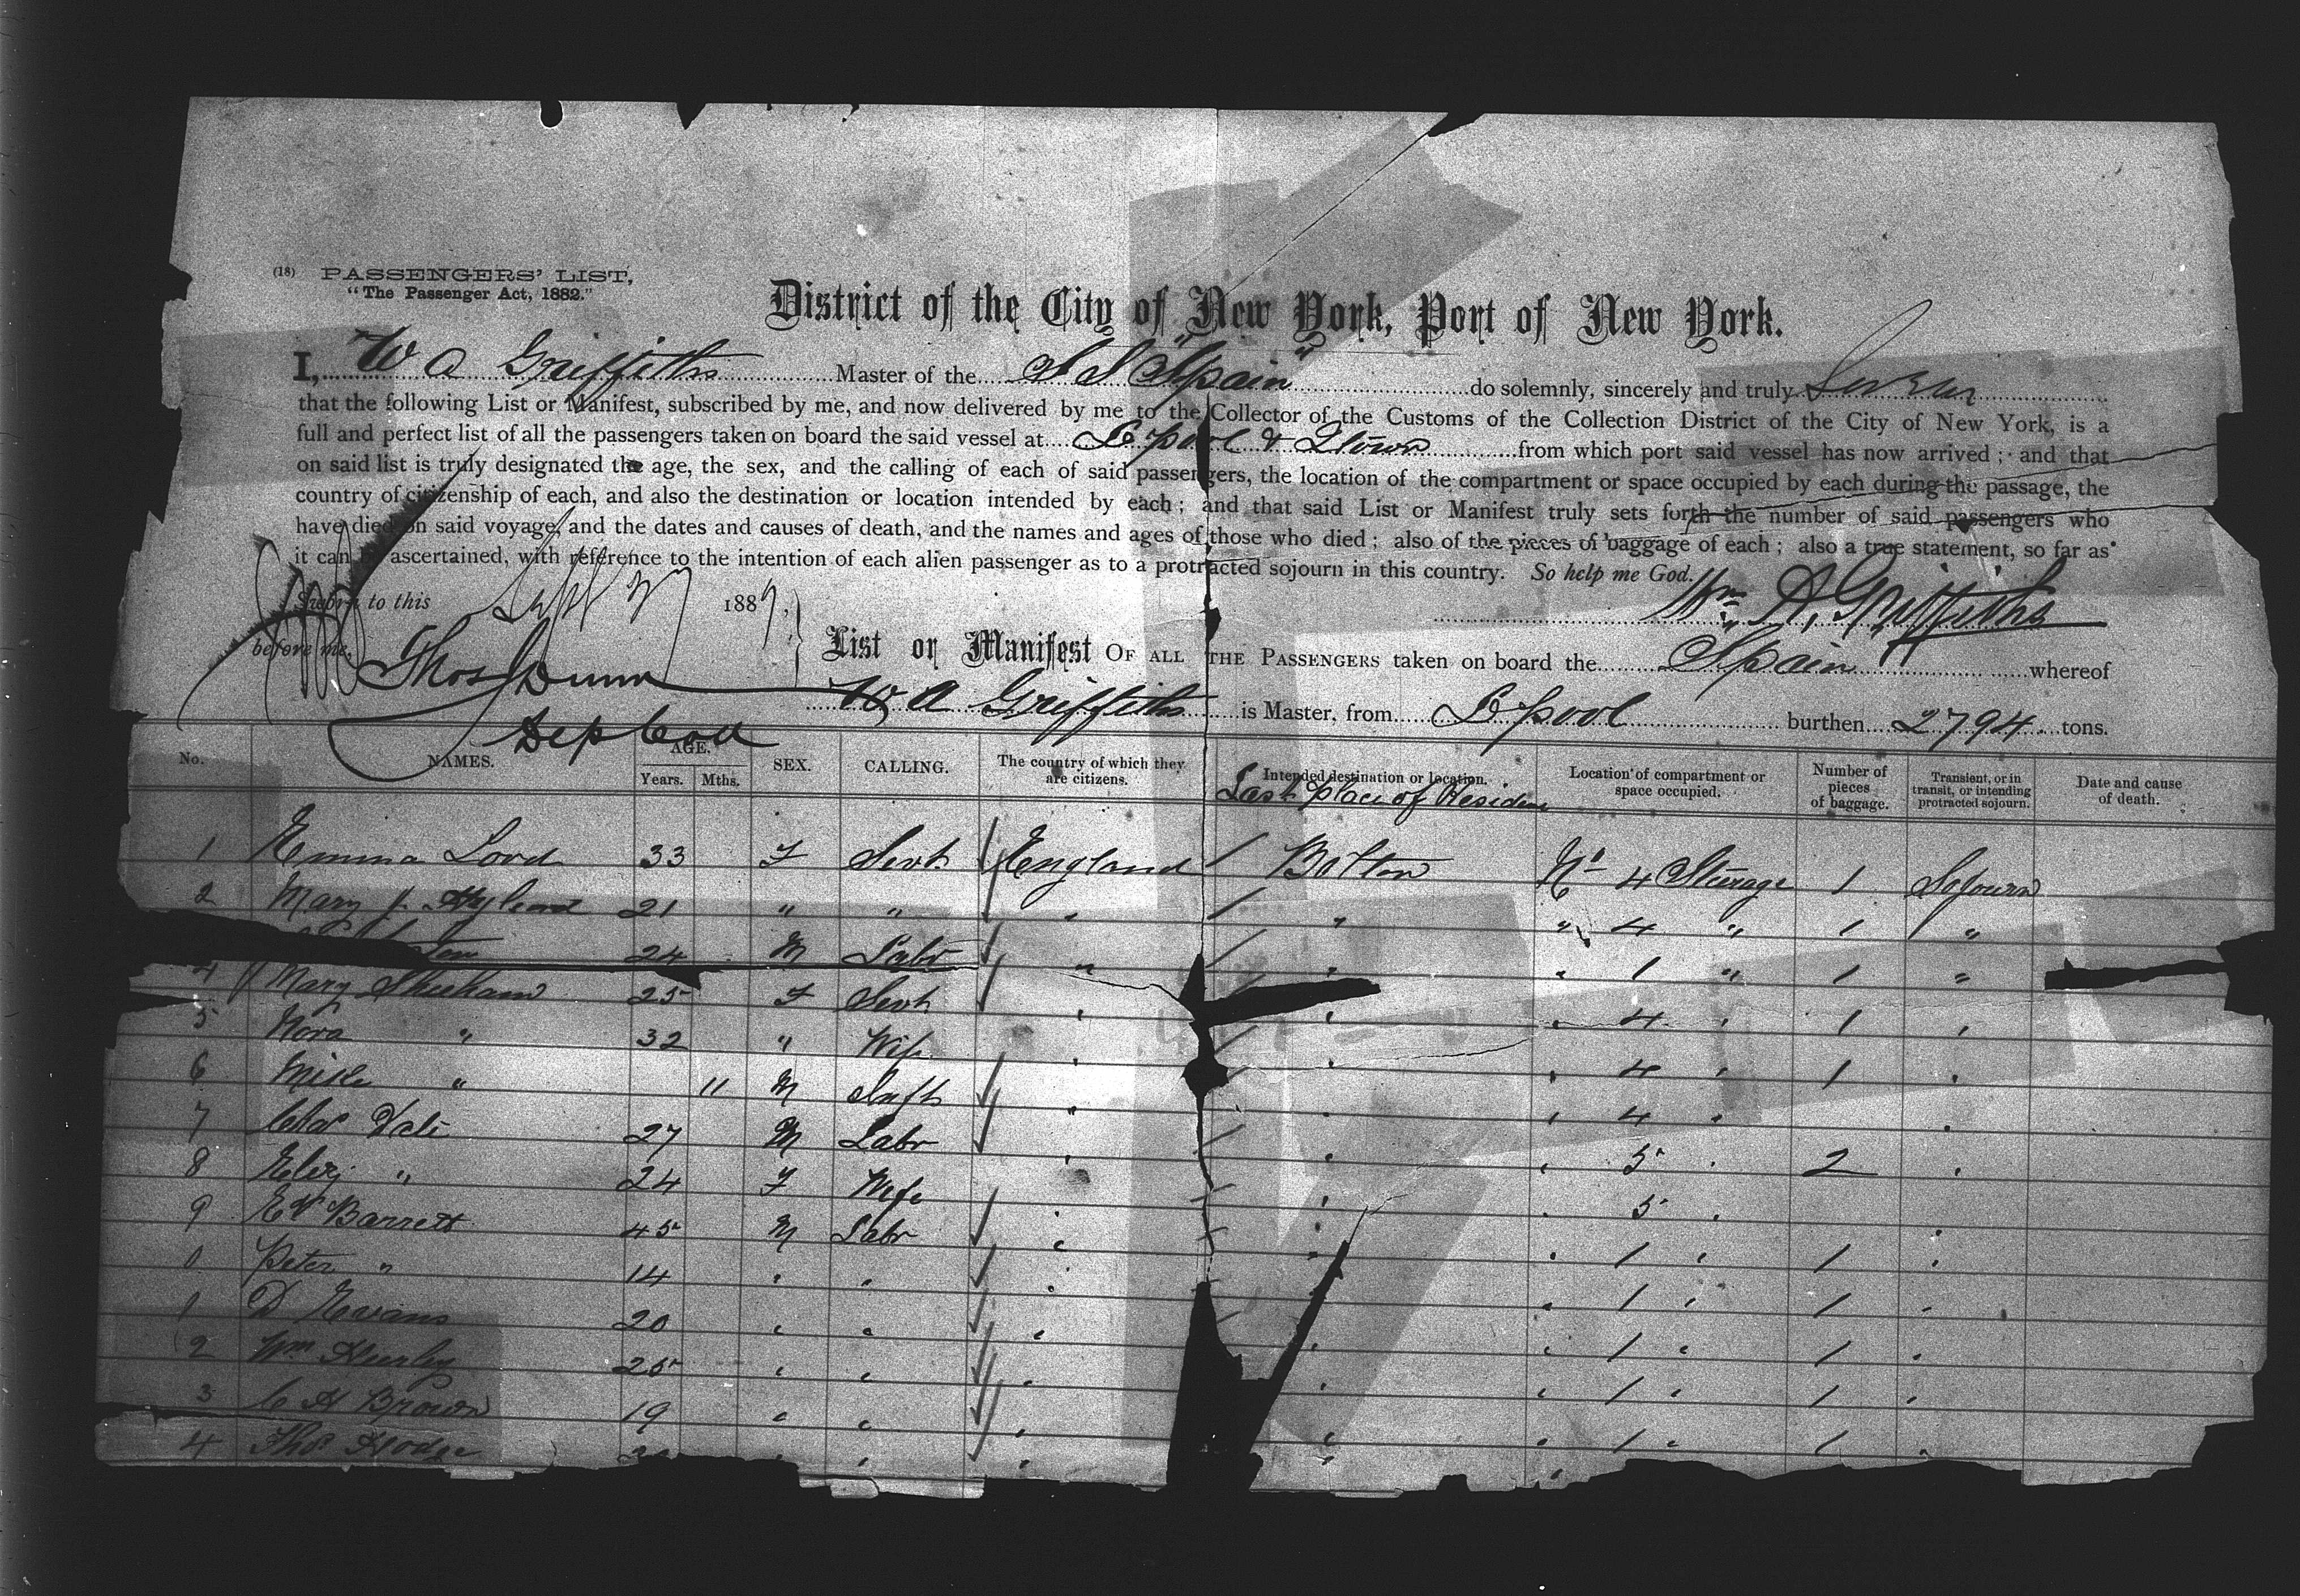 (18) PASSENGERS' LIST,
"The Passenger Act, 1882."
District of the City of New York, Port of New York.
I, W A Griffiths Master of the S S "Spain" do solemnly, sincerely and truly Swear
that the following List or Manifest, subscribed by me, and now delivered by me to the Collector of the Customs of the Collection District of the City of New York, is a
full and perfect list of all the passengers taken on board the said vessel at L'pool & Qtown from which port said vessel has now arrived; and that
on said list is truly designated the age, the sex, and the calling of each of said passengers, the location of the compartment or space occupied by each during the passage, the
country of citizenship of each, and also the destination or location intended by each; and that said List or Manifest truly sets forth the number of said passengers who
have died on said voyage, and the dates and causes of death, and the names and ages of those who died; also of the pieces of baggage of each; also a true statement, so far as
it can be ascertained, with reference to the intention of each alien passenger as to a protracted sojourn in this country. So help me God.
Wm A. Griffiths
Sworn to this Sept 1887,
before me, Thos Dunn
Dep Coll
List or Manifest OF ALL THE PASSENGERS taken on board the Spain whereof
W A Griffiths is Master, from L'pool burthen 2794 tons.
No. NAMES. AGE. Years. Mths. SEX. CALLING. The country of which they are citizens. Intended destination or location. Last place of Residence Location of compartment or space occupied. Number of pieces of baggage. Transient, or in transit, or intending protracted sojourn. Date and cause of death.
1 Emma Lord 33 F Servt England Bolton No 4 Steerage 1 Sojourn
2 Mary J. Hyland 21 " " " " " 4 " 1 "
24 M Labr " " " 1 " 1 "
4 Mary Sheehan 25 F Servt " " " 4 " 1 "
5 Nora " 32 " Wife " " " 4 " 1 "
6 Mike " 11 M Inft " " " 4 " "
7 Chas Vale 27 M Labr " " " 5 " 2 "
8 Eliz " 24 F Wife " " 5 " "
9 Ed Barrett 45 M Labr " " " 1 " 1 "
0 Peter " 14 " " " " " 1 " 1 "
1 D Evans 20 " " " " " 1 " 1 "
2 Wm Hurley 25 " " " " " 1 " 1 "
3 C H Brown 19 " " " " " 1 " 1 "
4 Thos Hodge " " " " "